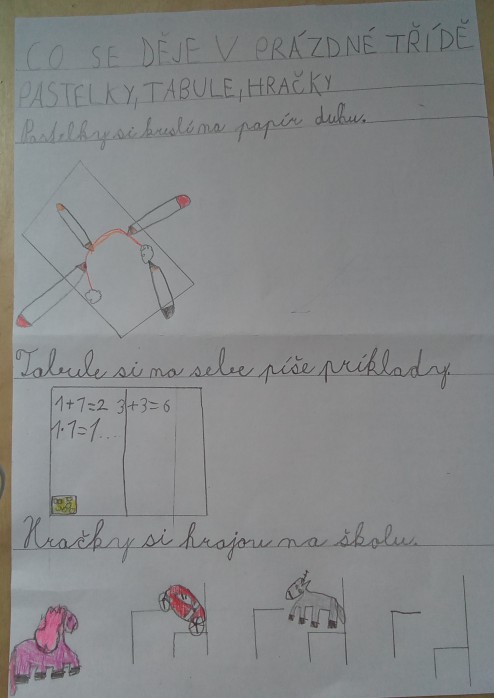 CO SE DĚJE V PRÁZDNÉ TŘÍDĚ
PASTELKY, TABULE, HRAČKY
Pastelky si kreslí na papír duhu.
Tabule si na sebe píše príklady.
1+1=2 3+3=6
1·1=1...
Hračky si hrajou na školu.